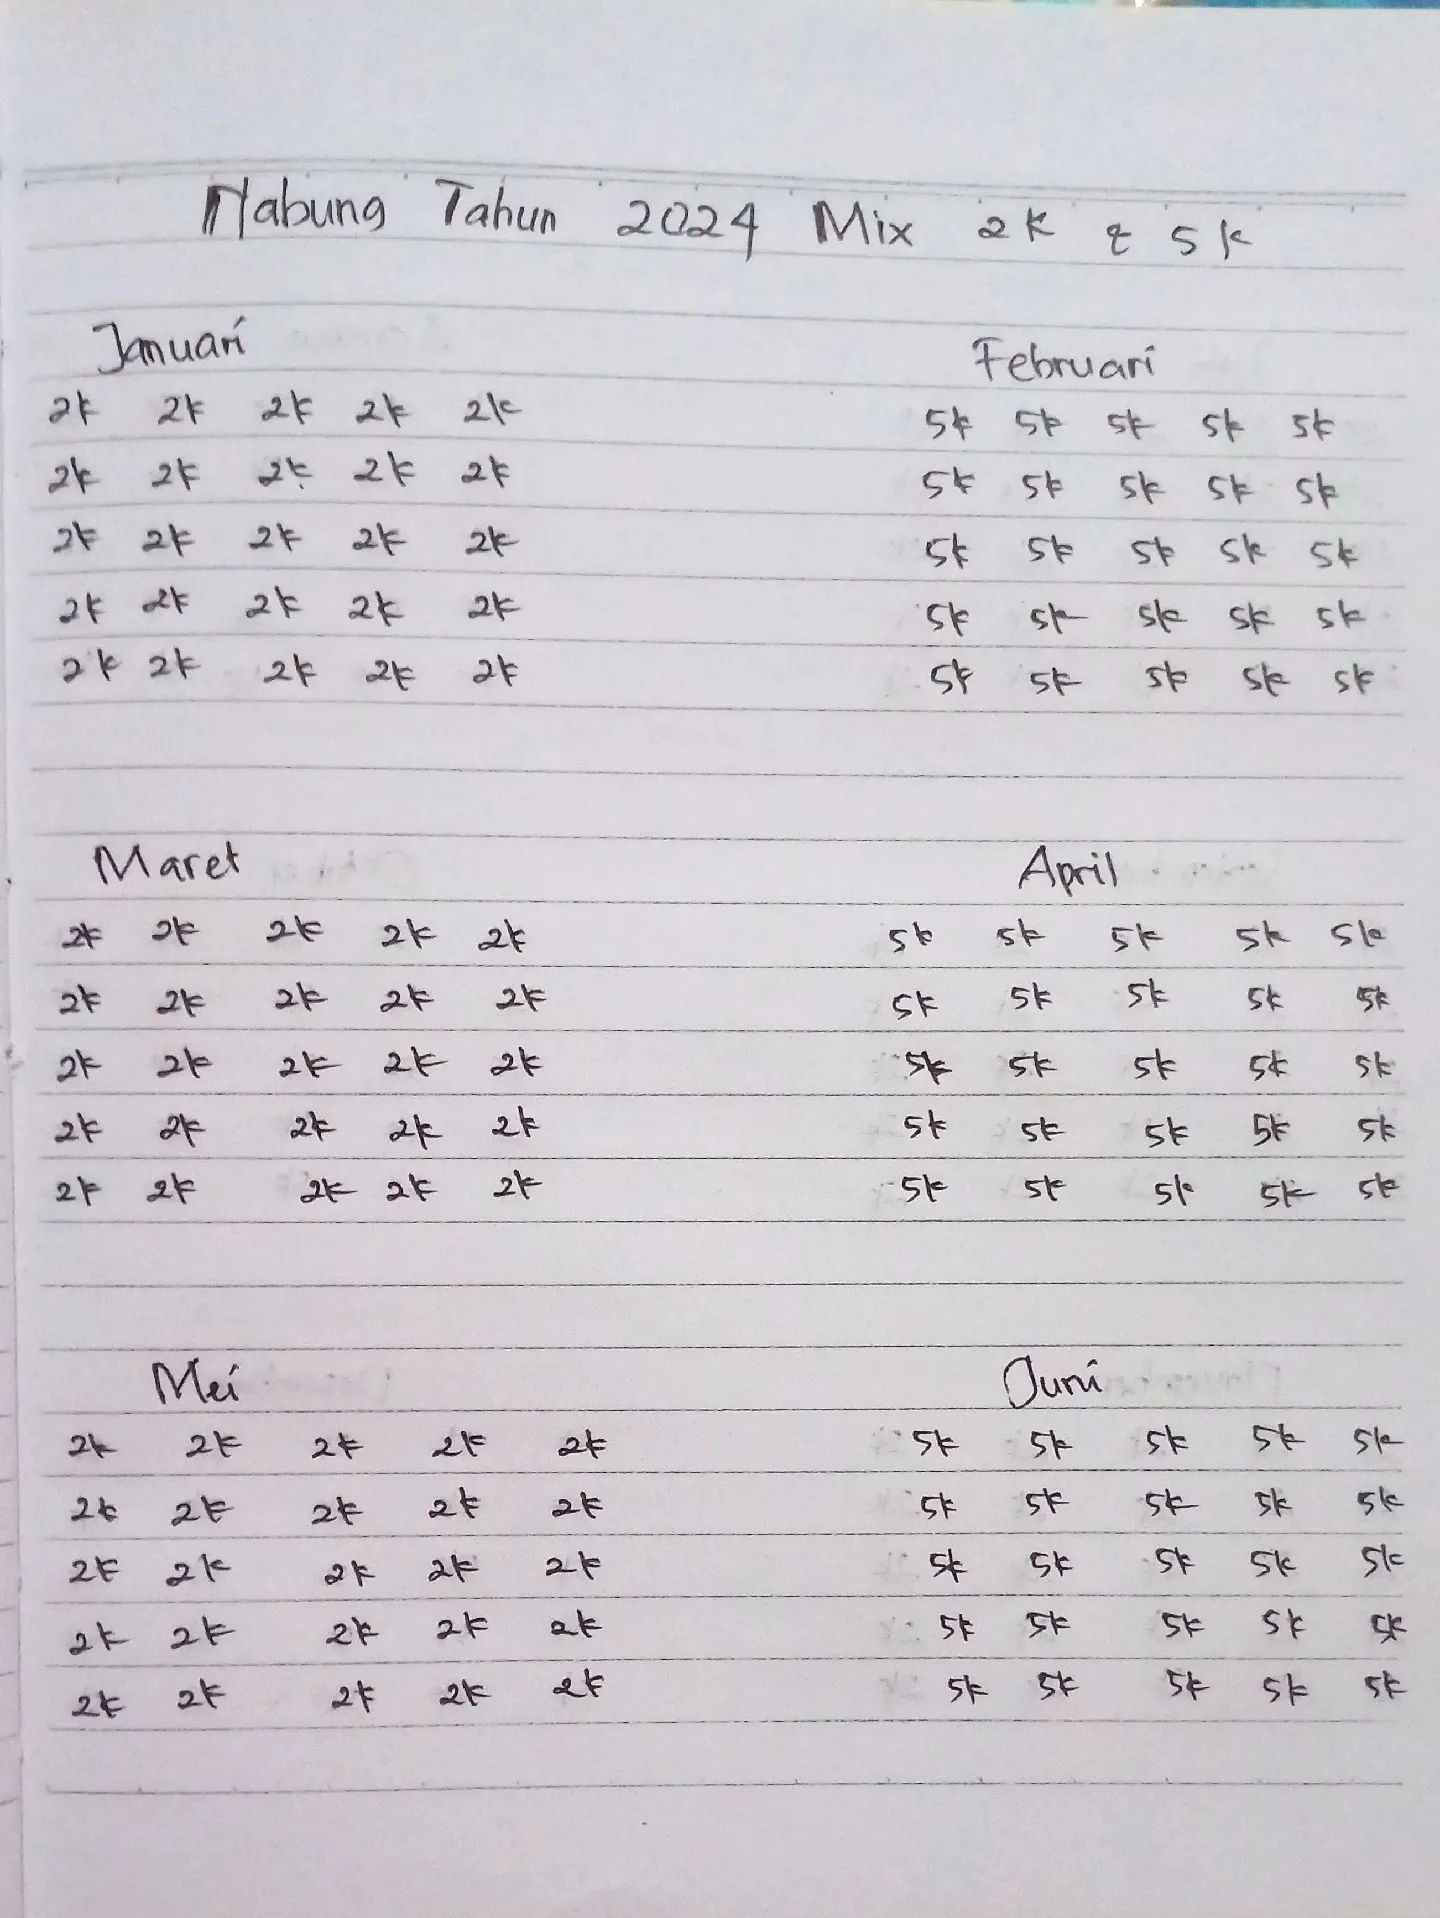 Nabung Tahun 2024 Mix 2k & 5k
Januari
2k 2k 2k 2k 2k
2k 2k 2k 2k 2k
2k 2k 2k 2k 2k
2k 2k 2k 2k 2k
2k 2k 2k 2k 2k
Februari
5k 5k 5k 5k 5k
5k 5k 5k 5k 5k
5k 5k 5k 5k 5k
5k 5k 5k 5k 5k
5k 5k 5k 5k 5k
Maret
2k 2k 2k 2k 2k
2k 2k 2k 2k 2k
2k 2k 2k 2k 2k
2k 2k 2k 2k 2k
2k 2k 2k 2k 2k
April
5k 5k 5k 5k 5k
5k 5k 5k 5k 5k
5k 5k 5k 5k 5k
5k 5k 5k 5k 5k
5k 5k 5k 5k 5k
Mei
2k 2k 2k 2k 2k
2k 2k 2k 2k 2k
2k 2k 2k 2k 2k
2k 2k 2k 2k 2k
2k 2k 2k 2k 2k
Juni
5k 5k 5k 5k 5k
5k 5k 5k 5k 5k
5k 5k 5k 5k 5k
5k 5k 5k 5k 5k
5k 5k 5k 5k 5k